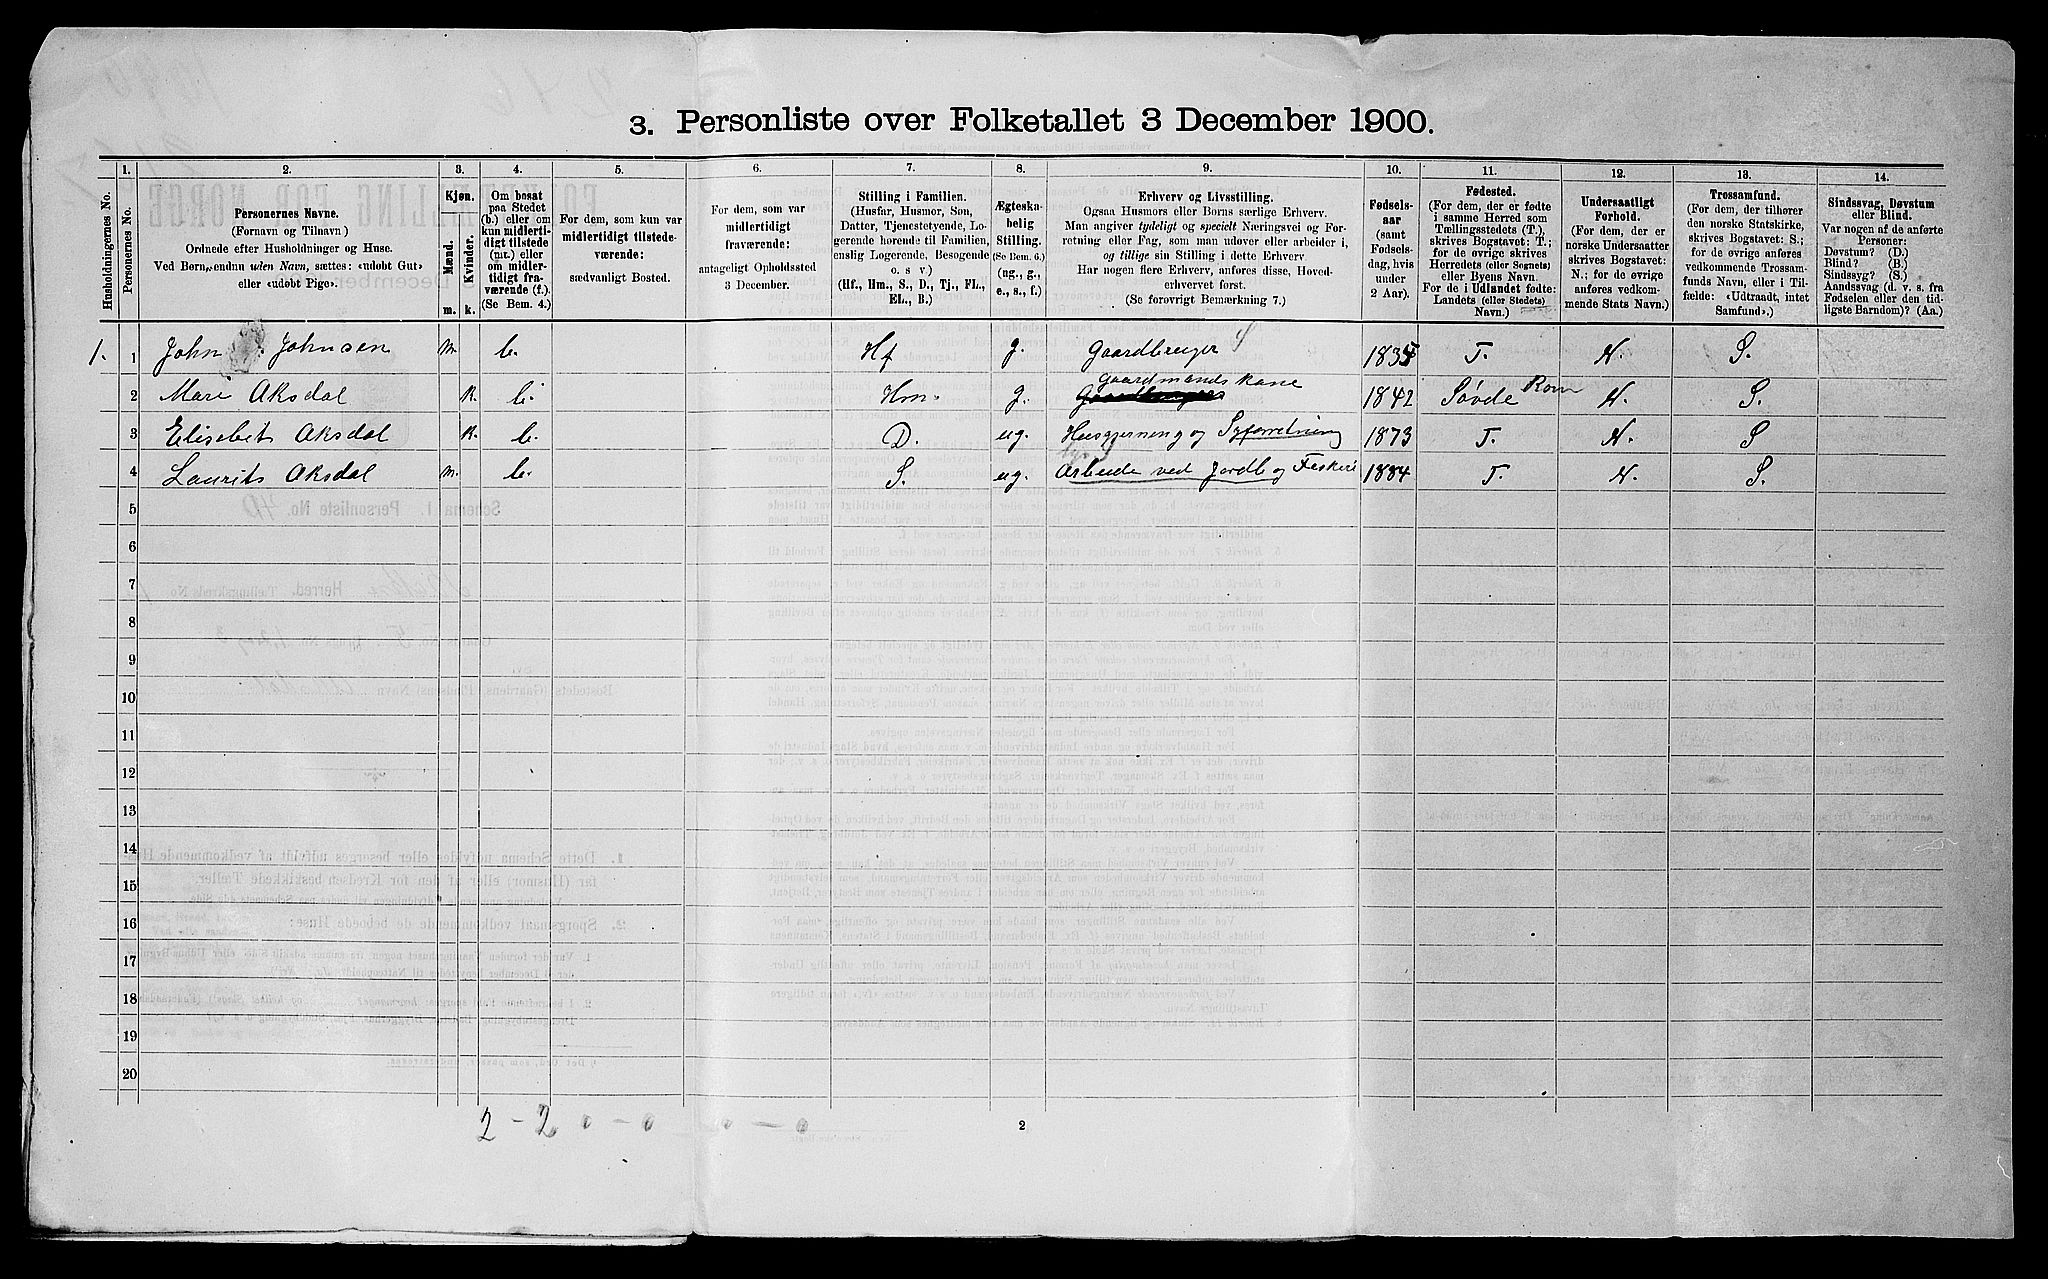 3. Personliste over Folketallet 3 December 1900.
1. 2. 3. 4. 5. 6. 7. 8. 9. 10. 11. 12. 13. 14.
Husholdningernes No.
Personernes No.
Personernes Navne.
(Fornavn og Tilnavn)
Ordnede efter Husholdninger og Huse.
Ved Børn, endnu uden Navn, sættes: «udøbt Gut»
eller «udøbt Pige».
Kjøn.
Mænd.
Kvinder.
m. k.
Om bosat
paa Stedet
(b.) eller om
kun midlerti-
digt tilstede
(mt.) eller
om midler-
tidigt fra-
værende (f.)
(Se Bem. 4.)
For dem, som kun var
midlertidigt tilstede-
værende:
sædvanligt Bosted.
For dem, som var
midlertidigt
fraværende:
antageligt Opholdssted
3 December.
Stilling i Familien.
(Husfar, Husmor, Søn,
Datter, Tjenestetyende, Lo-
gerende hørende til Familien,
enslig Logerende, Besøgende
o. s. v)
(Hf., Hm., S., D., Tj., FL.,
EL., B.)
Ægteska-
belig
Stilling.
(Se Bem. 6.)
(ug., g.,
e., s., f.)
Erhverv og Livsstilling.
Ogsaa Husmors eller Børns særlige Erhverv.
Man angiver tydeligt og specielt Næringsvei og For-
retning eller Fag, som man udøver eller arbeider i,
og tillige sin Stilling i dette Erhverv.
Har nogen flere Erhverv, anføres disse, Hoved-
erhvervet først.
(Se forøvrigt Bemærkning 7.)
Fødsels-
aar
(samt
Fødsels-
dag, hvis
under
2 Aar).
Fødested.
(For dem, der er fødte
i samme Herred som
Tællingsstedets (T.),
skrives Bogstavet: T.;
for de øvrige skrives
Herredets (eller Sognets)
eller Byens Navn.
For de i Udlandet fødte:
Landets (eller Stedets)
Navn.)
Undersaatligt
Forhold.
(For dem, der er
norske Undersaatter
skrives Bogstavet:
N.; for de øvrige
anføres vedkom-
mende Stats Navn.)
Trossamfund.
(For dem, der tilhører
den norske Statskirke,
skrives Bogstavet: S.;
for de øvrige anføres
vedkommende Trossam-
funds Navn, eller i Til-
fælde: «Udtraadt, intet
Samfund».)
Sindssvag, Døvstum
eller Blind.
Var nogen af de anførte
Personer:
Døvstum? (D.)
Blind? (B.)
Sindssyg? (S.)
Aandssvag (d. v. s. fra
Fødselen eller den tid-
ligste Barndom)? (Aa.)
1. 1 John Johnsen m. b. Hf g. Gaardbruger 1835 T. N. S.
2 Mari Aksdal k. b. Hm. g. Gaardmandskone 1842 Søvde Rom N. S.
3 Elisebet Aksdal k. b. D. ug. Husgjerning og Syforretning 1873 T. N. S
4 Laurits Aksdal m. b. S. ug. Arbeide ved Jordb og Fiskeri 1884 T. N. S.
5
6
7
8
9
10
11
12
13
14
15
16
17
18
19
20
2 - 2 0 - 0 0 - 0
2